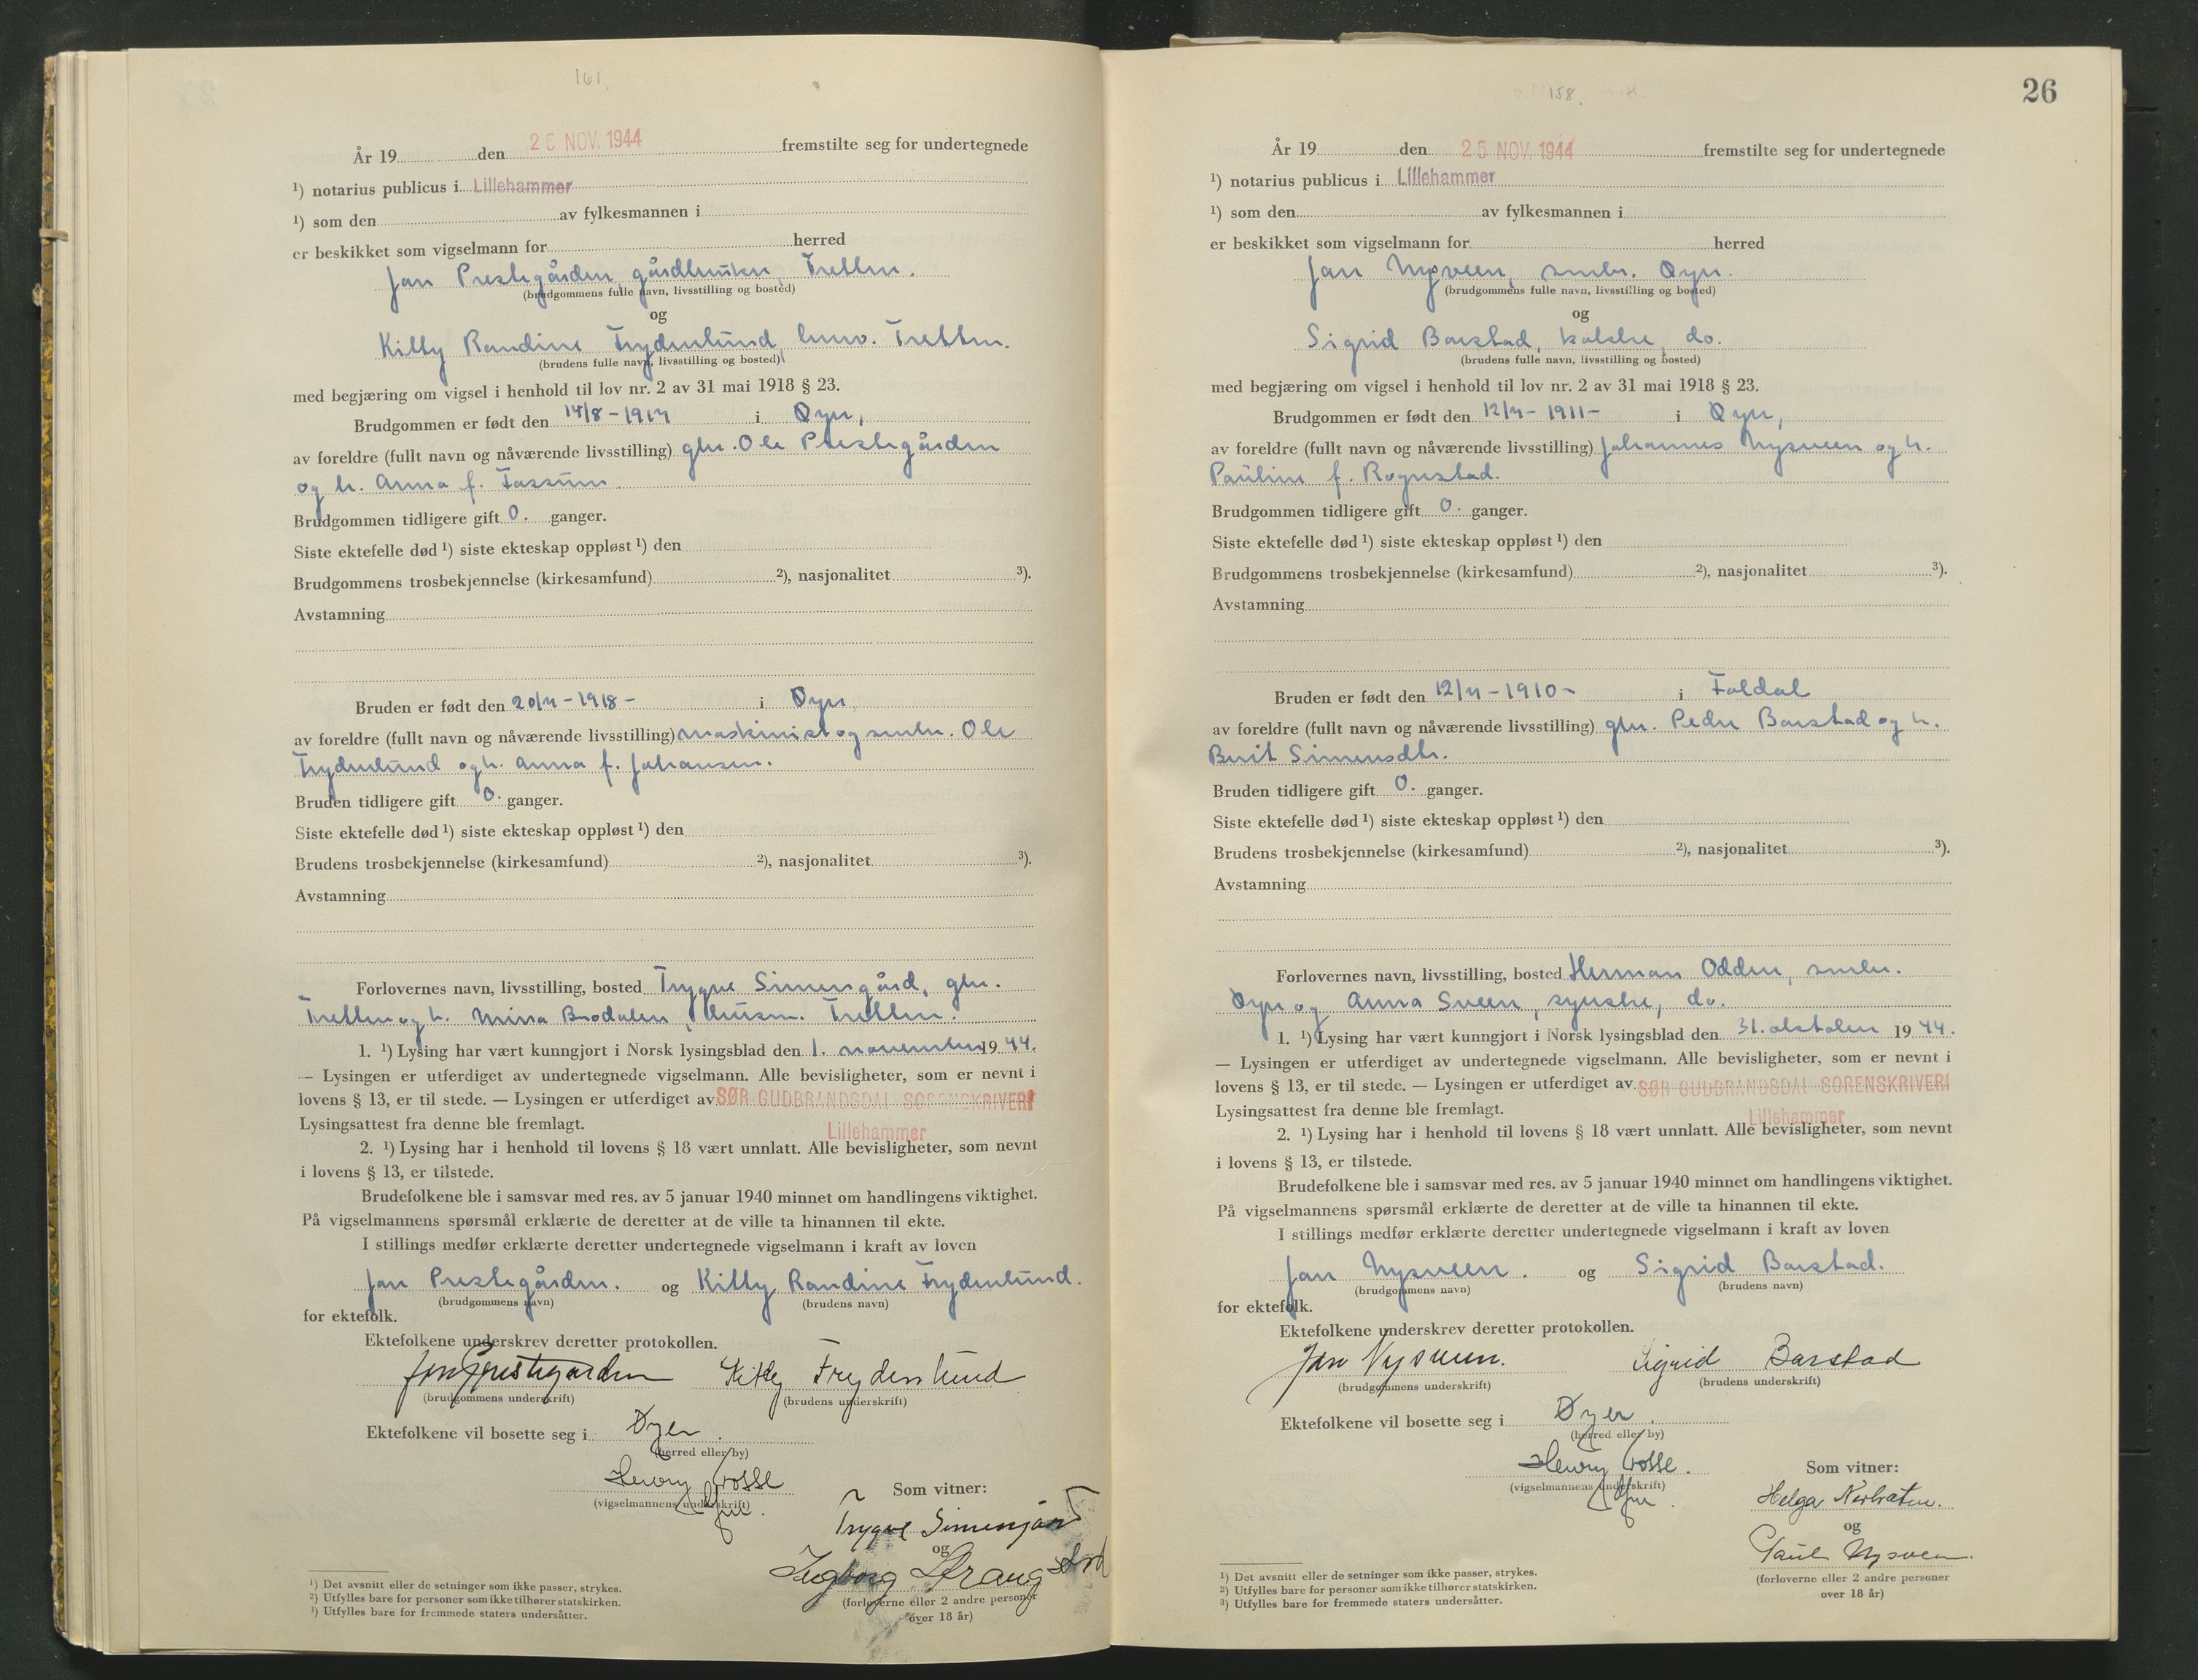 161.
År 19 den 25 NOV. 1944 fremstilte seg for undertegnede
¹) notarius publicus i Lillehammer
¹) som den av fylkesmannen i
er beskikket som vigselmann for herred
Jan Prestegården, gårdbruker Tretten.
(brudgommens fulle navn, livsstilling og bosted)
og
Kitty Randine Frydenlund, Tretten.
(brudens fulle navn, livsstilling og bosted)
med begjæring om vigsel i henhold til lov nr. 2 av 31 mai 1918 § 23.
Brudgommen er født den 14/8-1914 i Øyer,
av foreldre (fullt navn og nåværende livsstilling) gbr. Ole Prestegården
og h. Anna f. Fossum.
Brudgommen tidligere gift 0. ganger.
Siste ektefelle død ¹) siste ekteskap oppløst ¹) den
Brudgommens trosbekjennelse (kirkesamfund) ²), nasjonalitet ³).
Avstamning
Bruden er født den 20/4-1918- i Øyer
av foreldre (fullt navn og nåværende livsstilling) maskinist og smbr. Ole
Frydenlund og h. Anna f. Johansen.
Bruden tidligere gift 0. ganger.
Siste ektefelle død ¹) siste ekteskap oppløst ¹) den
Brudens trosbekjennelse (kirkesamfund) ²), nasjonalitet ³).
Avstamning
Forlovernes navn, livsstilling, bosted Trygve Simengård, gbr.
Tretten og h. Brodalen, husm. Tretten.
1. ¹) Lysing har vært kunngjort i Norsk lysingsblad den 1. november 1944.
— Lysingen er utferdiget av undertegnede vigselmann. Alle bevisligheter, som er nevnt i
lovens § 13, er til stede. — Lysingen er utferdiget av SØR GUDBRANDSDAL SORENSKRIVERI
Lysingsattest fra denne ble fremlagt. Lillehammer
2. ¹) Lysing har i henhold til lovens § 18 vært unnlatt. Alle bevisligheter, som nevnt
i lovens § 13, er tilstede.
Brudefolkene ble i samsvar med res. av 5 januar 1940 minnet om handlingens viktighet.
På vigselmannens spørsmål erklærte de deretter at de ville ta hinannen til ekte.
I stillings medfør erklærte deretter undertegnede vigselmann i kraft av loven
Jan Prestegården. og Kitty Randine Frydenlund.
(brudgommens navn) (brudens navn)
for ektefolk.
Ektefolkene underskrev deretter protokollen.
Jan Prestegarden Kitty Frydenlund
(brudgommens underskrift) (brudens underskrift)
Ektefolkene vil bosette seg i Øyer.
(herred eller by)
Henry Grosse
(vigselmannens underskrift)
Som vitner:
Trygve Simengård
og
Ingborg
(forloverne eller 2 andre personer
over 18 år)
¹) Det avsnitt eller de setninger som ikke passer, strykes.
²) Utfylles bare for personer som ikke tilhører statskirken.
³) Utfylles bare for fremmede staters undersåtter.
26
158.
År 19 den 25 NOV. 1944 fremstilte seg for undertegnede
¹) notarius publicus i Lillehammer
¹) som den av fylkesmannen i
er beskikket som vigselmann for herred
Jan Nysveen, smbr. Øyer.
(brudgommens fulle navn, livsstilling og bosted)
og
Sigrid Barstad, do.
(brudens fulle navn, livsstilling og bosted)
med begjæring om vigsel i henhold til lov nr. 2 av 31 mai 1918 § 23.
Brudgommen er født den 12/4-1911- i Øyer,
av foreldre (fullt navn og nåværende livsstilling) Johannes Nysveen og h.
Pauline f. Rognstad.
Brudgommen tidligere gift 0. ganger.
Siste ektefelle død ¹) siste ekteskap oppløst ¹) den
Brudgommens trosbekjennelse (kirkesamfund) ²), nasjonalitet ³).
Avstamning
Bruden er født den 12/4-1910- i Foldal
av foreldre (fullt navn og nåværende livsstilling) gbr. Peder Barstad og h.
Berit Simensdtr.
Bruden tidligere gift 0. ganger.
Siste ektefelle død ¹) siste ekteskap oppløst ¹) den
Brudens trosbekjennelse (kirkesamfund) ²), nasjonalitet ³).
Avstamning
Forlovernes navn, livsstilling, bosted Herman Odden, smbr.
Øyer og Anna Sveen, syerske, do.
1. ¹) Lysing har vært kunngjort i Norsk lysingsblad den 31. oktober 1944.
— Lysingen er utferdiget av undertegnede vigselmann. Alle bevisligheter, som er nevnt i
lovens § 13, er til stede. — Lysingen er utferdiget av SØR GUDBRANDSDAL SORENSKRIVERI
Lysingsattest fra denne ble fremlagt. Lillehammer
2. ¹) Lysing har i henhold til lovens § 18 vært unnlatt. Alle bevisligheter, som nevnt
i lovens § 13, er tilstede.
Brudefolkene ble i samsvar med res. av 5 januar 1940 minnet om handlingens viktighet.
På vigselmannens spørsmål erklærte de deretter at de ville ta hinannen til ekte.
I stillings medfør erklærte deretter undertegnede vigselmann i kraft av loven
Jan Nysveen. og Sigrid Barstad.
(brudgommens navn) (brudens navn)
for ektefolk.
Ektefolkene underskrev deretter protokollen.
Jan Nysveen. Sigrid Barstad
(brudgommens underskrift) (brudens underskrift)
Ektefolkene vil bosette seg i Øyer.
(herred eller by)
Henry Grosse.
(vigselmannens underskrift)
Som vitner:
Helga
og
Paul Nysveen.
(forloverne eller 2 andre personer
over 18 år)
¹) Det avsnitt eller de setninger som ikke passer, strykes.
²) Utfylles bare for personer som ikke tilhører statskirken.
³) Utfylles bare for fremmede staters undersåtter.